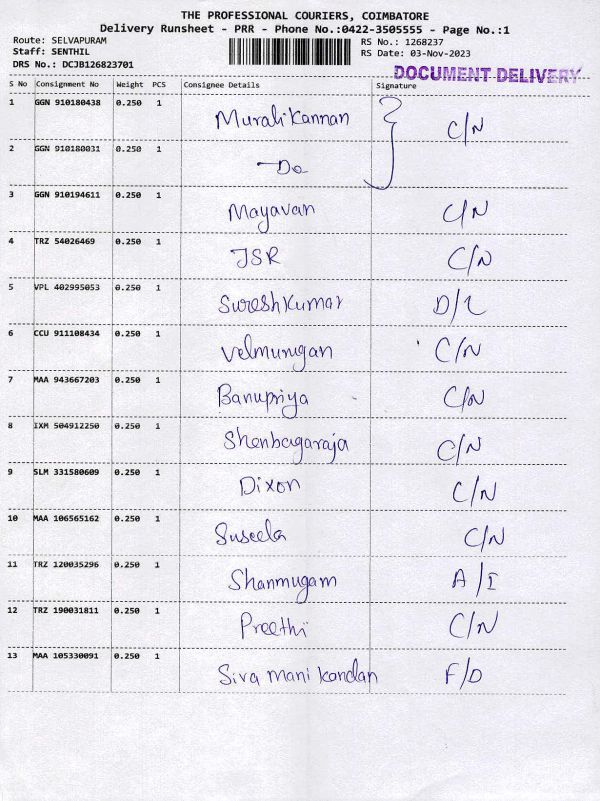 THE PROFESSIONAL COURIERS, COIMBATORE
Delivery Runsheet - PRR - Phone No.:0422-3505555 - Page No.:1
Route: SELVAPURAM RS No.: 1268237
Staff: SENTHIL RS Date: 03-Nov-2023
DRS No.: DCJB126823701
DOCUMENT DELIVERY
S No Consignment No Weight PCS Consignee Details Signature
1 GGN 910180438 0.250 1 Muralikannan C/N
2 GGN 910180031 0.250 1 Do
3 GGN 910194611 0.250 1 Mayavan C/N
4 TRZ 54026469 0.250 1 JSR C/N
5 VPL 402995053 0.250 1 Sureshkumar D/L
6 CCU 911108434 0.250 1 Velmurugan C/N
7 MAA 943667203 0.250 1 Banupriya C/N
8 IXM 504912250 0.250 1 Shenbagaraja C/N
9 SLM 331580609 0.250 1 Dixon C/N
10 MAA 106565162 0.250 1 Suseela C/N
11 TRZ 120035296 0.250 1 Shanmugam A/I
12 TRZ 190031811 0.250 1 Preethi C/N
13 MAA 105330091 0.250 1 Siva mani kandan F/D